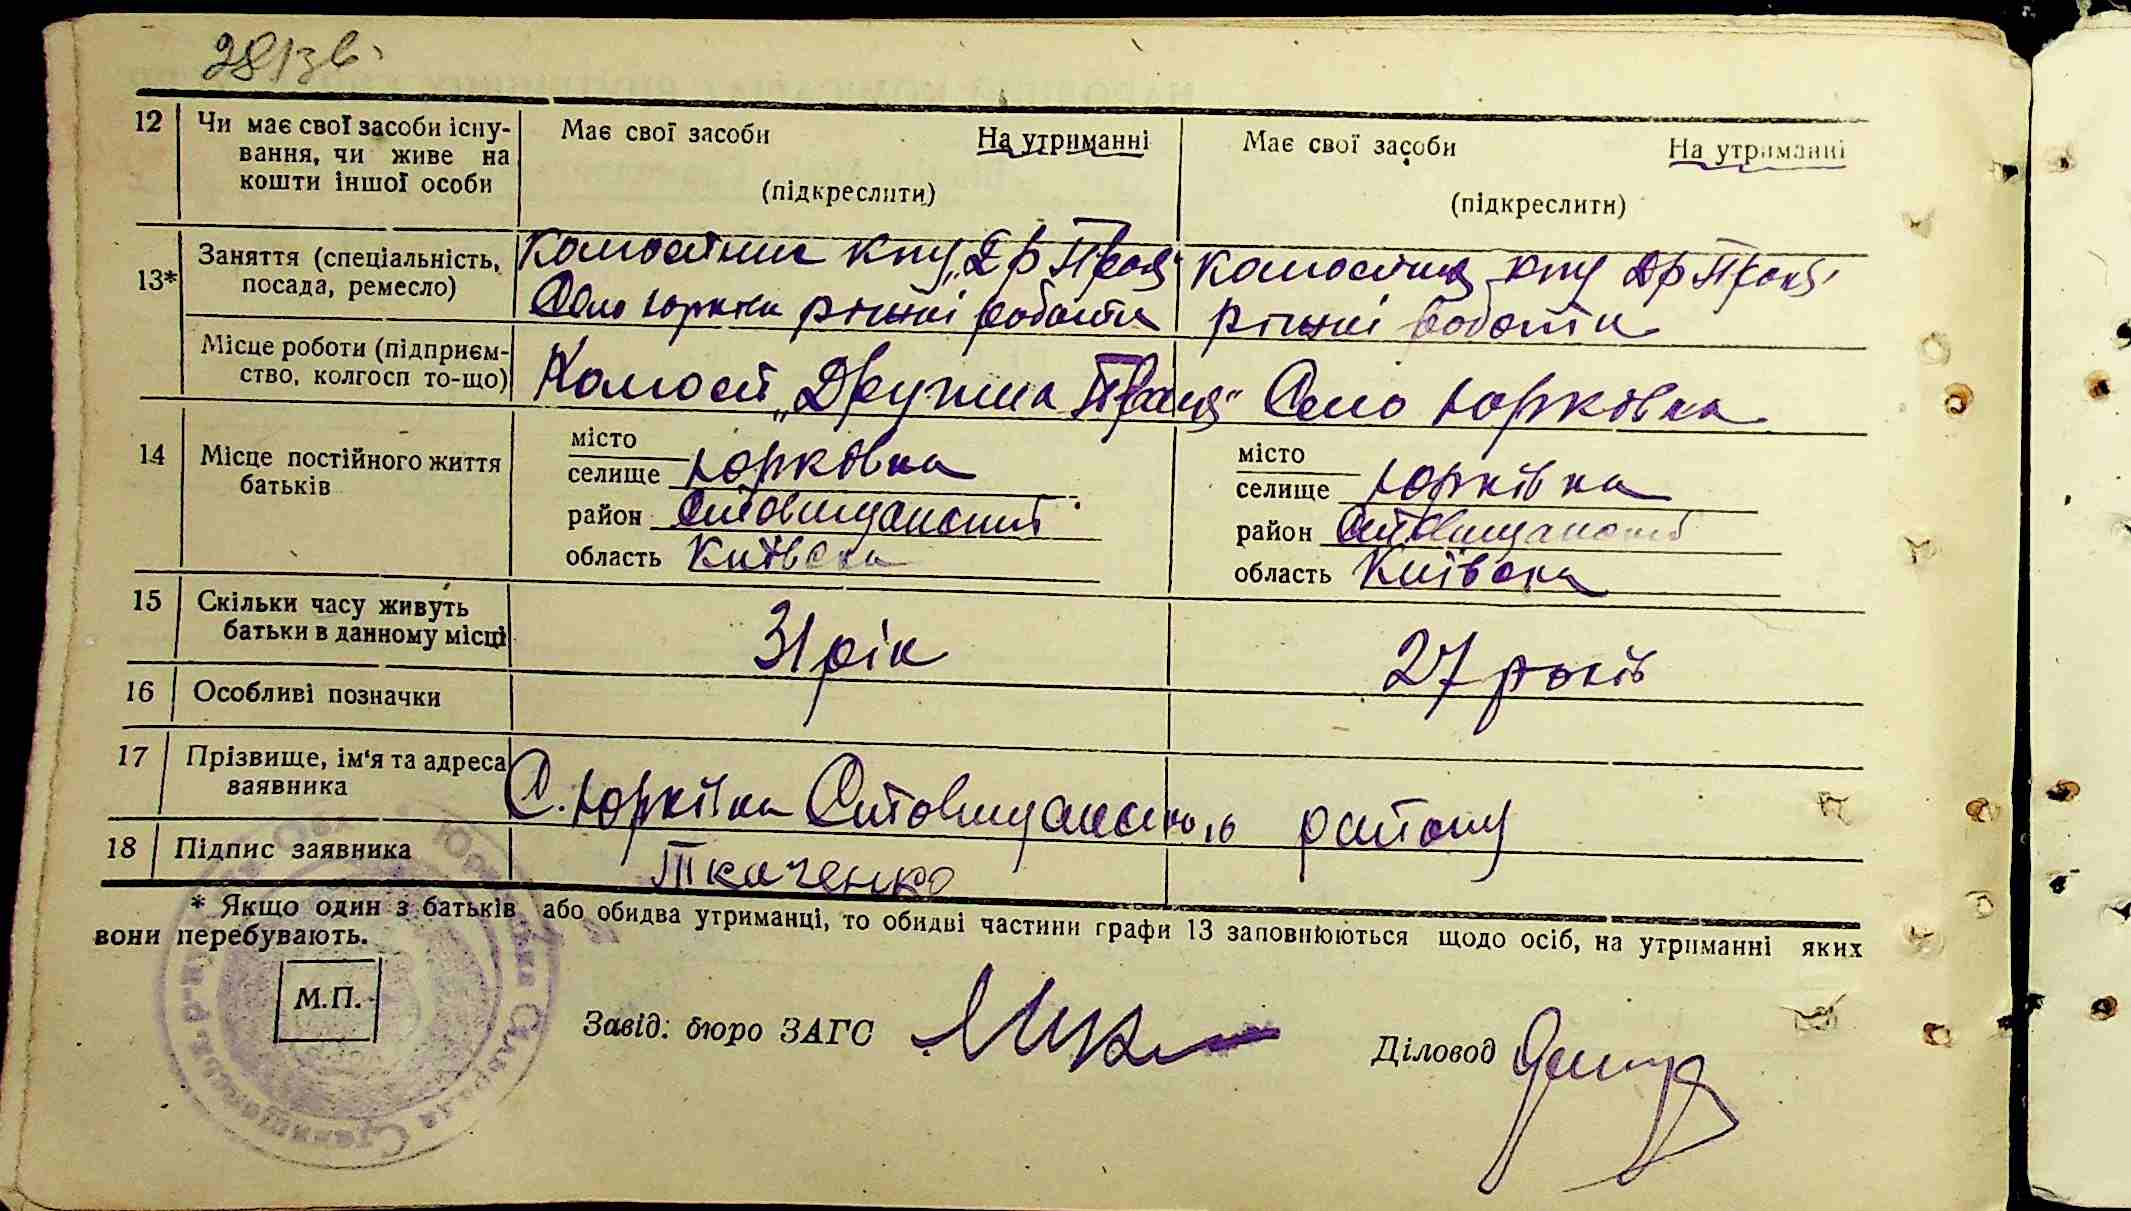 28 зв
12 Чи має свої засоби існу-
вання, чи живе на
кошти іншої особи
Має свої засоби На утриманні
(підкреслити)
Має свої засоби На утриманні
(підкреслити)
13* Заняття (спеціальність,
посада, ремесло)
Село Юрківка різні роботи
різні роботи
Місце роботи (підприєм-
ство, колгосп то-що)
„Дружна Праця" Село Юрківка
14 Місце постійного життя
батьків
місто
селище Юрківка
район Ставищанский
область Київска
місто
селище Юрківка
район Ставищанский
область Київска
15 Скільки часу живуть
батьки в данному місці
31 рік
27 років
16 Особливі позначки
17 Прізвище, ім'я та адреса
заявника
С. Юрківка Ставищанского району
18 Підпис заявника
Ткаченко
* Якщо один з батьків або обидва утриманці, то обидві частини графи 13 заповнюються щодо осіб, на утриманні яких
вони перебувають.
М.П.
Завід. бюро ЗАГС
Діловод